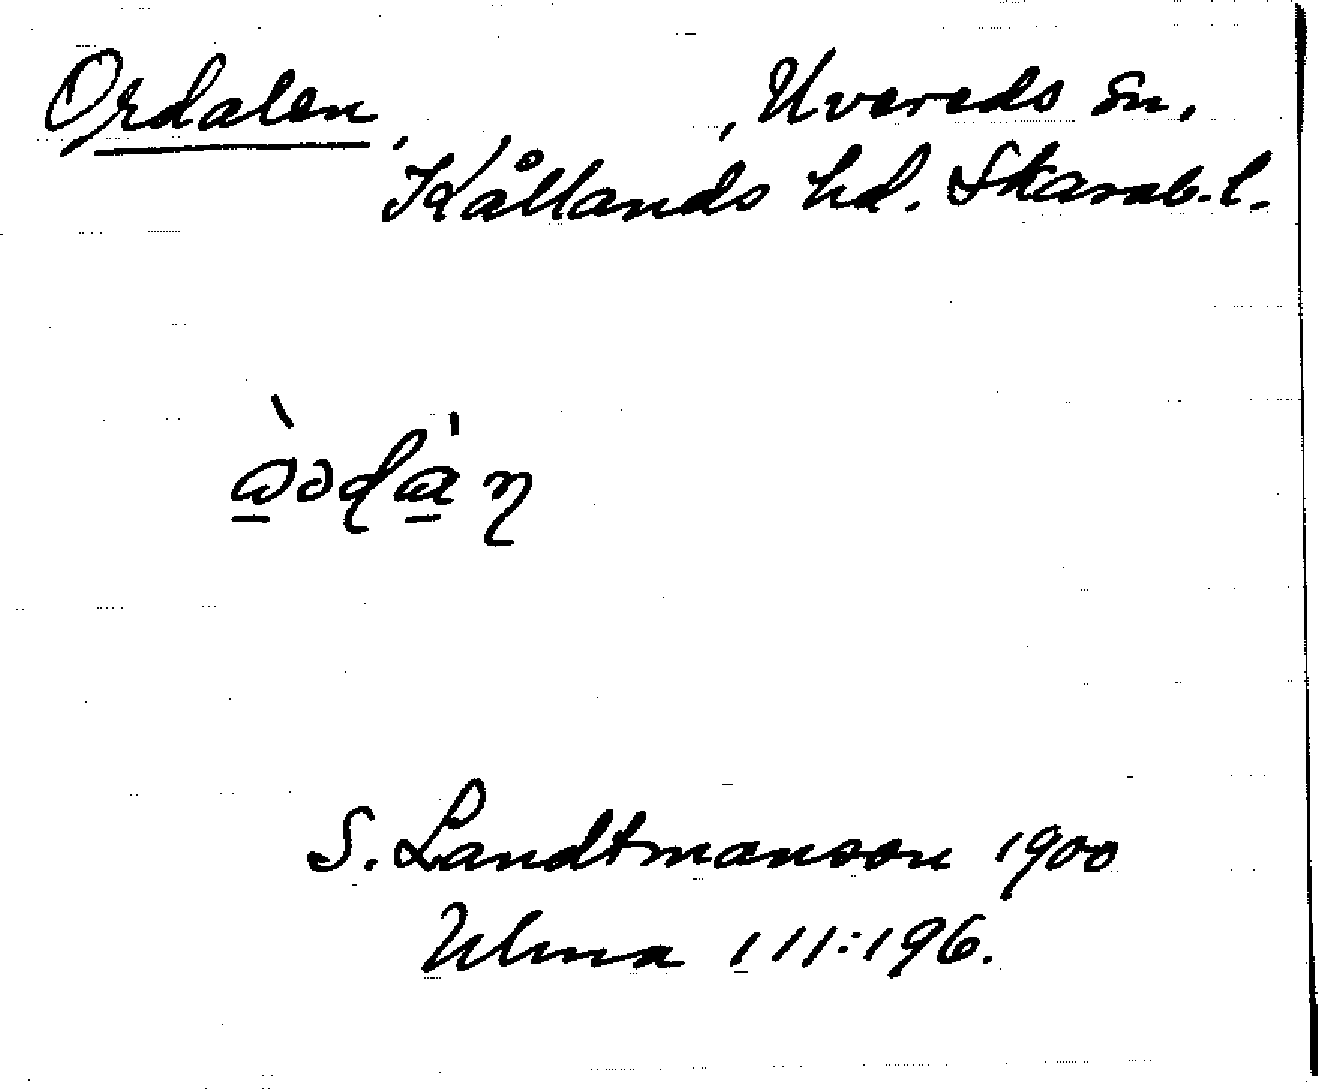 Ordalen, , Uvereds sn.
Kållands hd. Skarab.l.
S. Landtmanson 1900
Ulma 111:196.